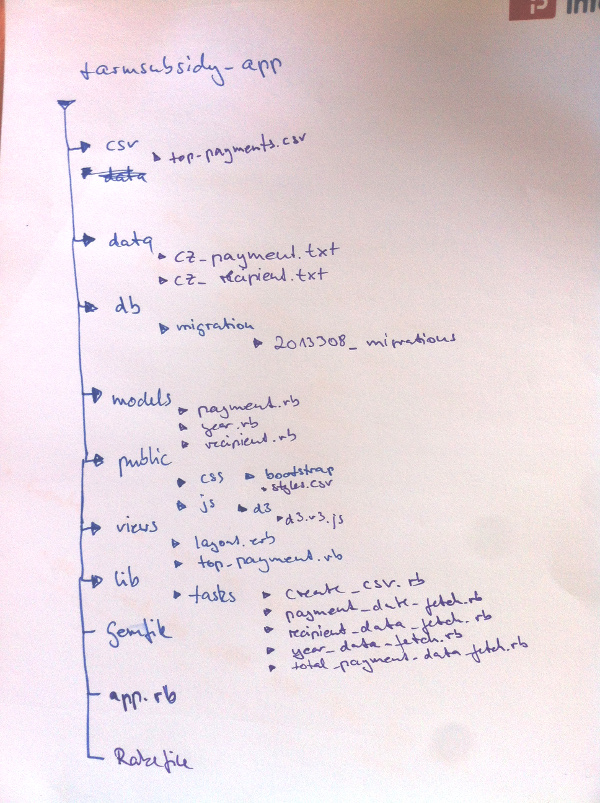 farmsubsidy-app
csv
top-payments.csv
data
data
cz-payment.txt
cz_recipient.txt
db
migration
2013308_migrations
models
payment.rb
year.rb
recipient.rb
public
css
bootstrap
styles.csv
js
d3
d3.v3.js
views
layout.erb
top_payment.rb
lib
tasks
create_csv.rb
payment_date_fetch.rb
recipient_data_fetch.rb
year_data_fetch.rb
total_payment_data_fetch.rb
Gemfile
app.rb
Rakefile